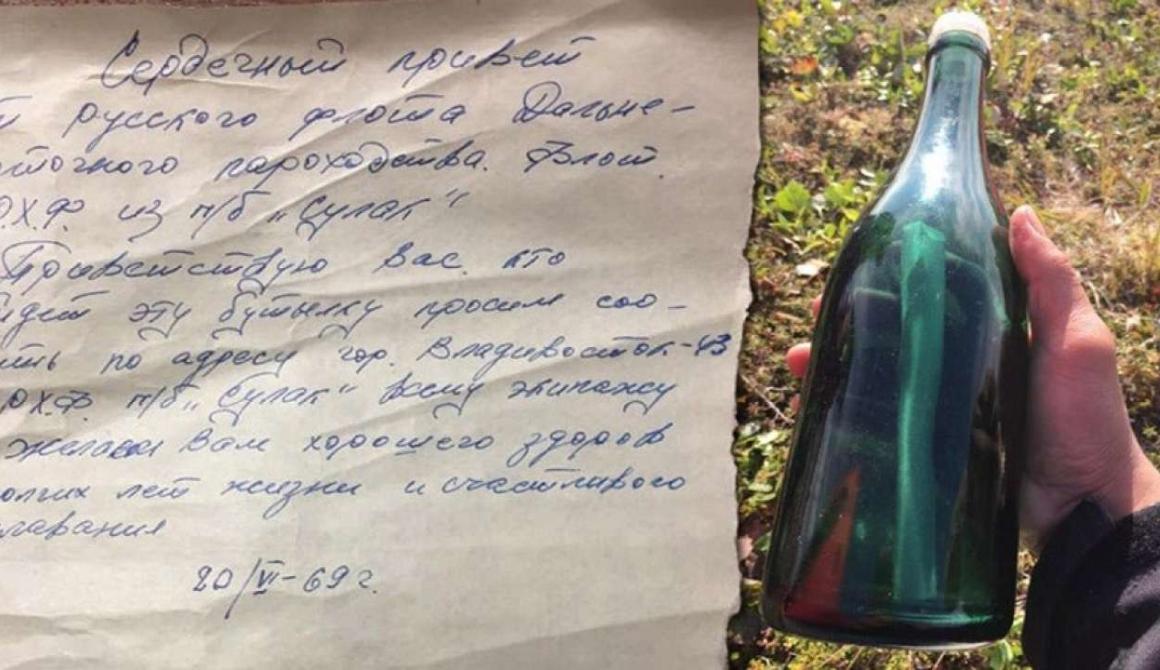 Сердечный привет
т русского флота Дальне-
сточного пароходства. Флот
Р.Х.Ф. из п/б „Сулак"
Приветствую Вас. кто
йдет эту бутылку просим соо-
ить по адресу гор. Владивосток-43
РХ.Ф. п/б „Сулак" всему экипажу
желаем Вам хорошего здоров
олгих лет жизни и счастливого
лавания
20/VI-69 г.